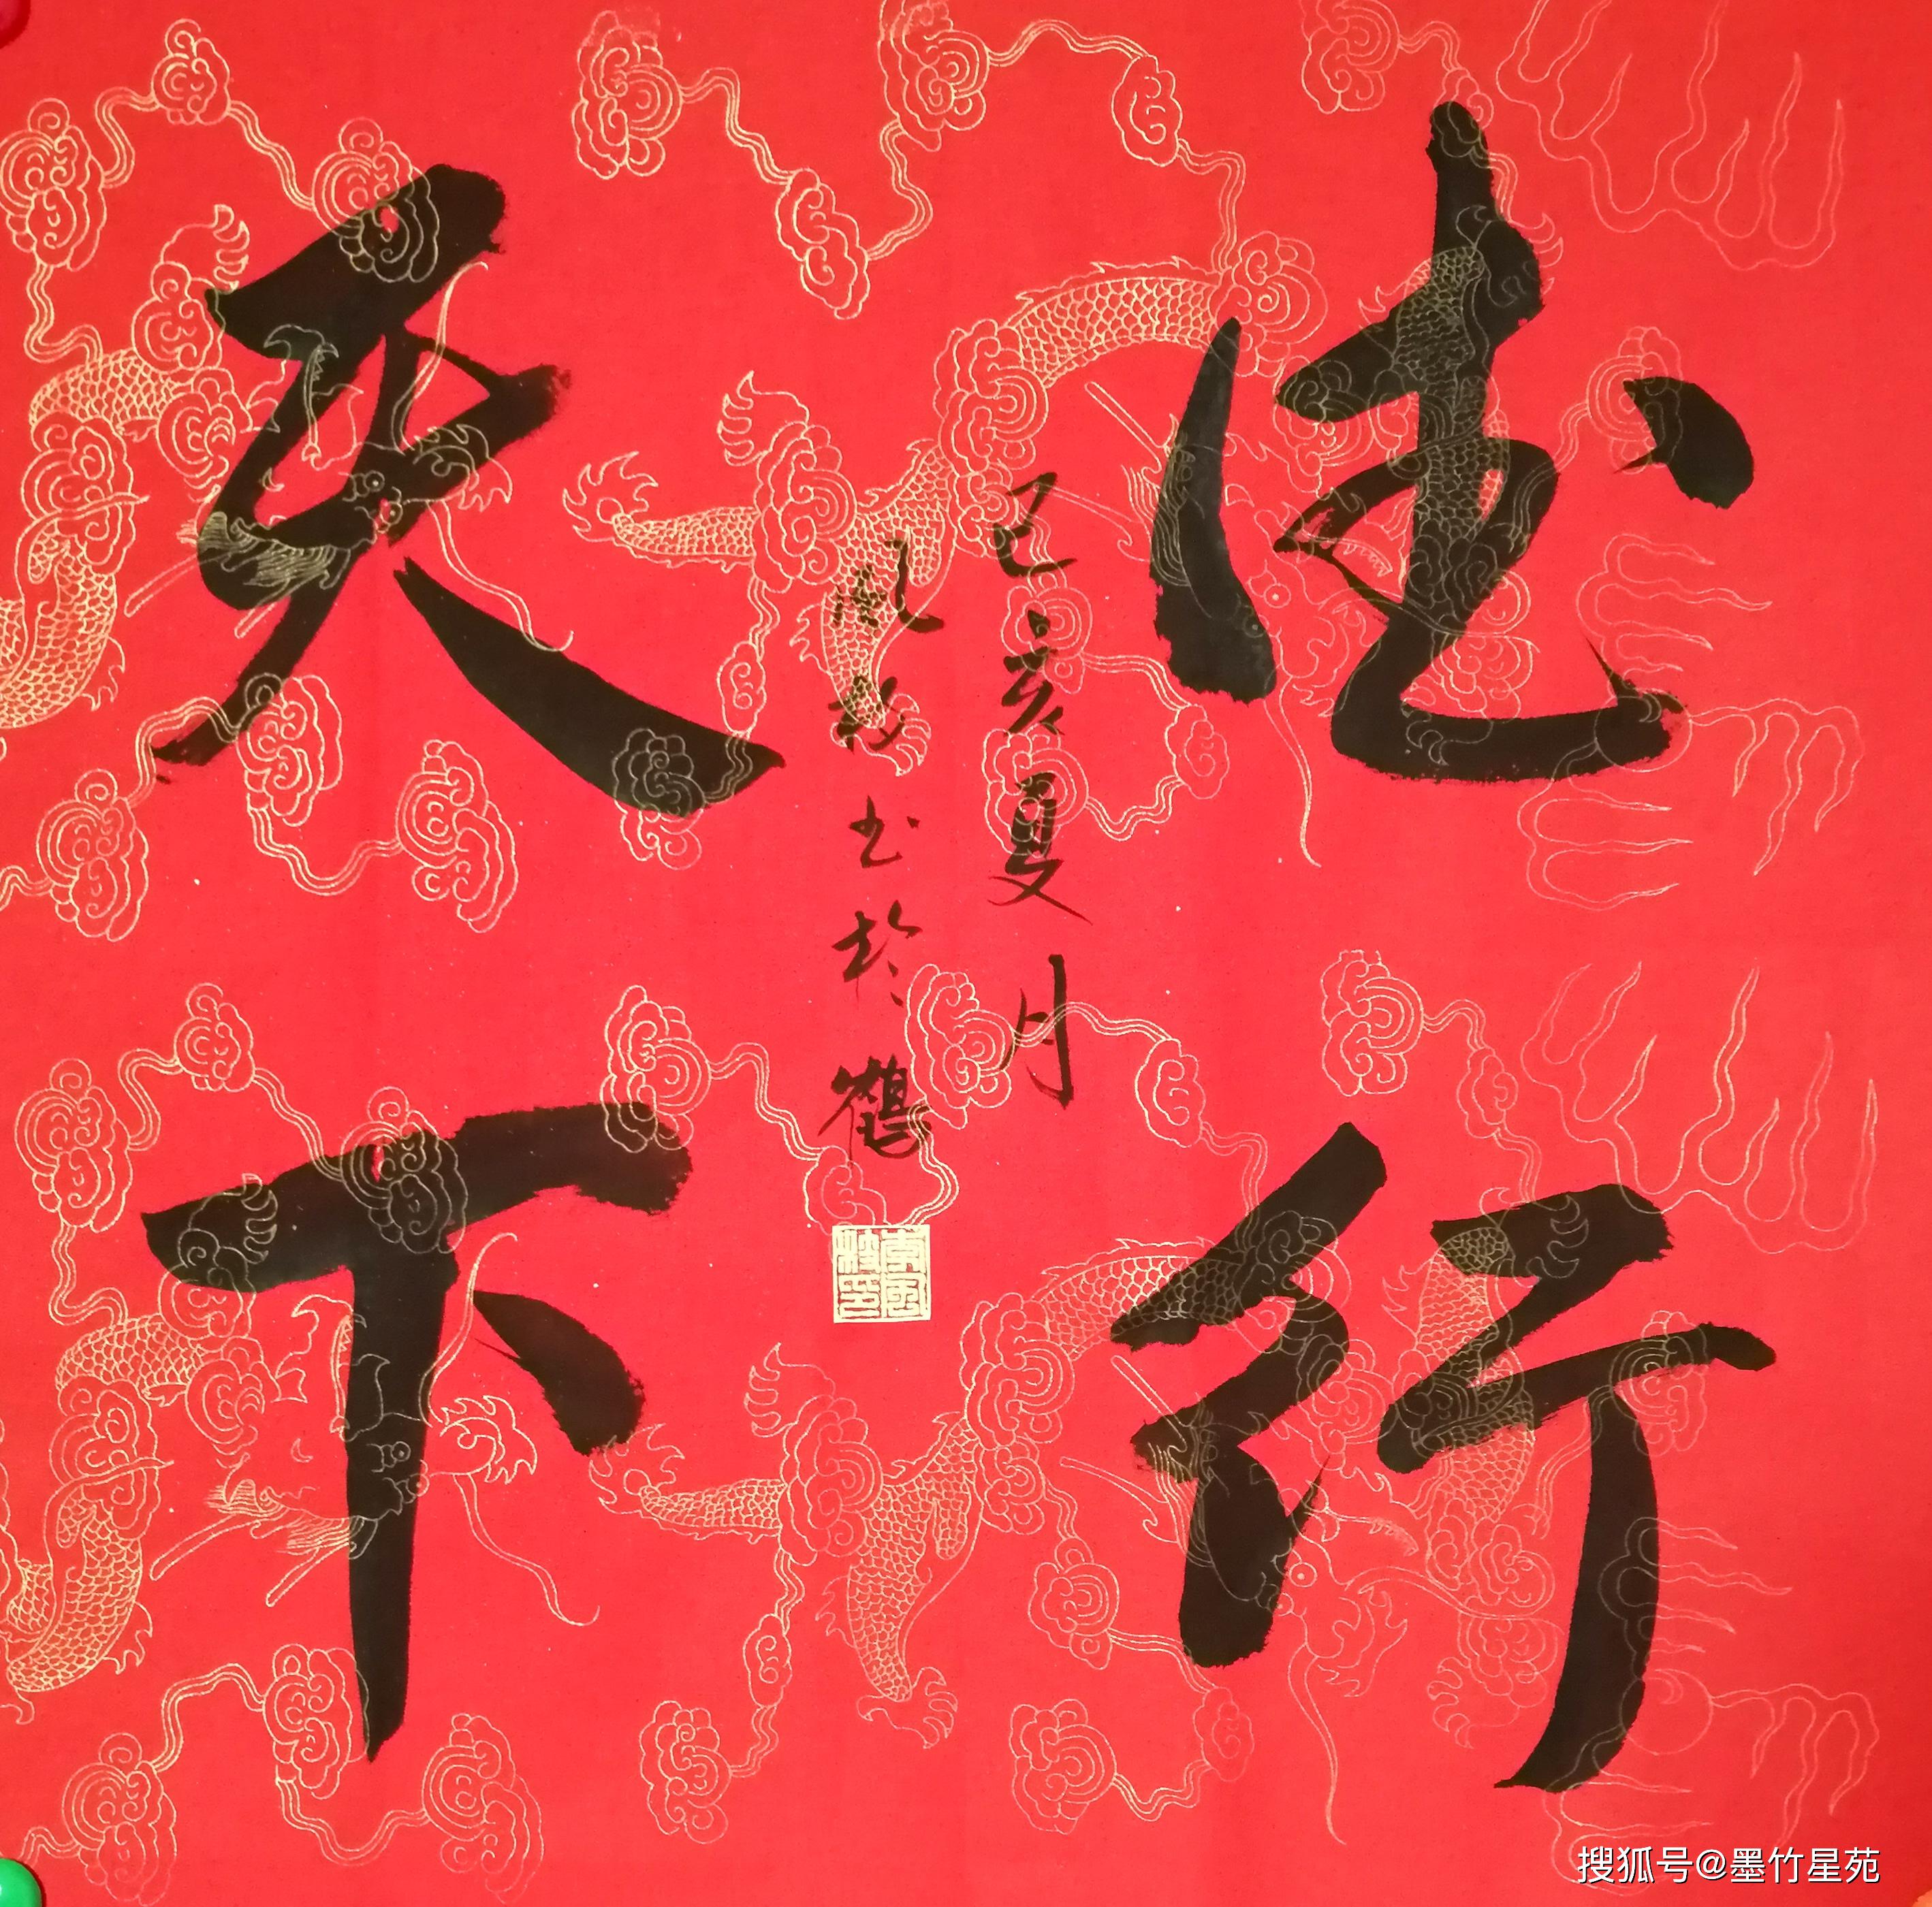 德行
天下
己亥夏月
風书於鶴
搜狐号@墨竹星苑